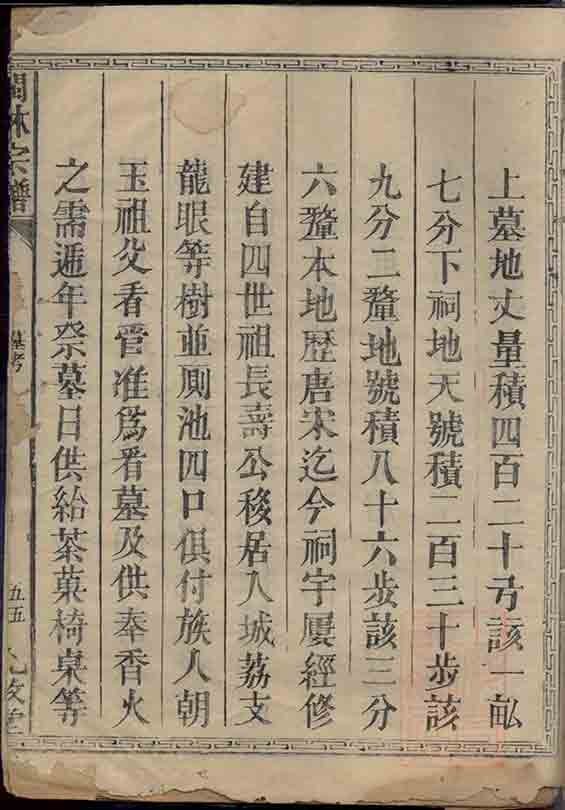 上墓地丈量積四百二十弓該一畆
七分下祠地天號積二百三十步該
九分二釐地號積八十六步該三分
六釐本地歷唐宋迄今祠宇屢經修
建自四世祖長壽公移居入城荔支
龍眼等樹並厠池四口俱付族人朝
玉祖父看管准爲看墓及供奉香火
之需遞年祭墓日供給茶菓椅桌等
林宗譜
墓考
五五